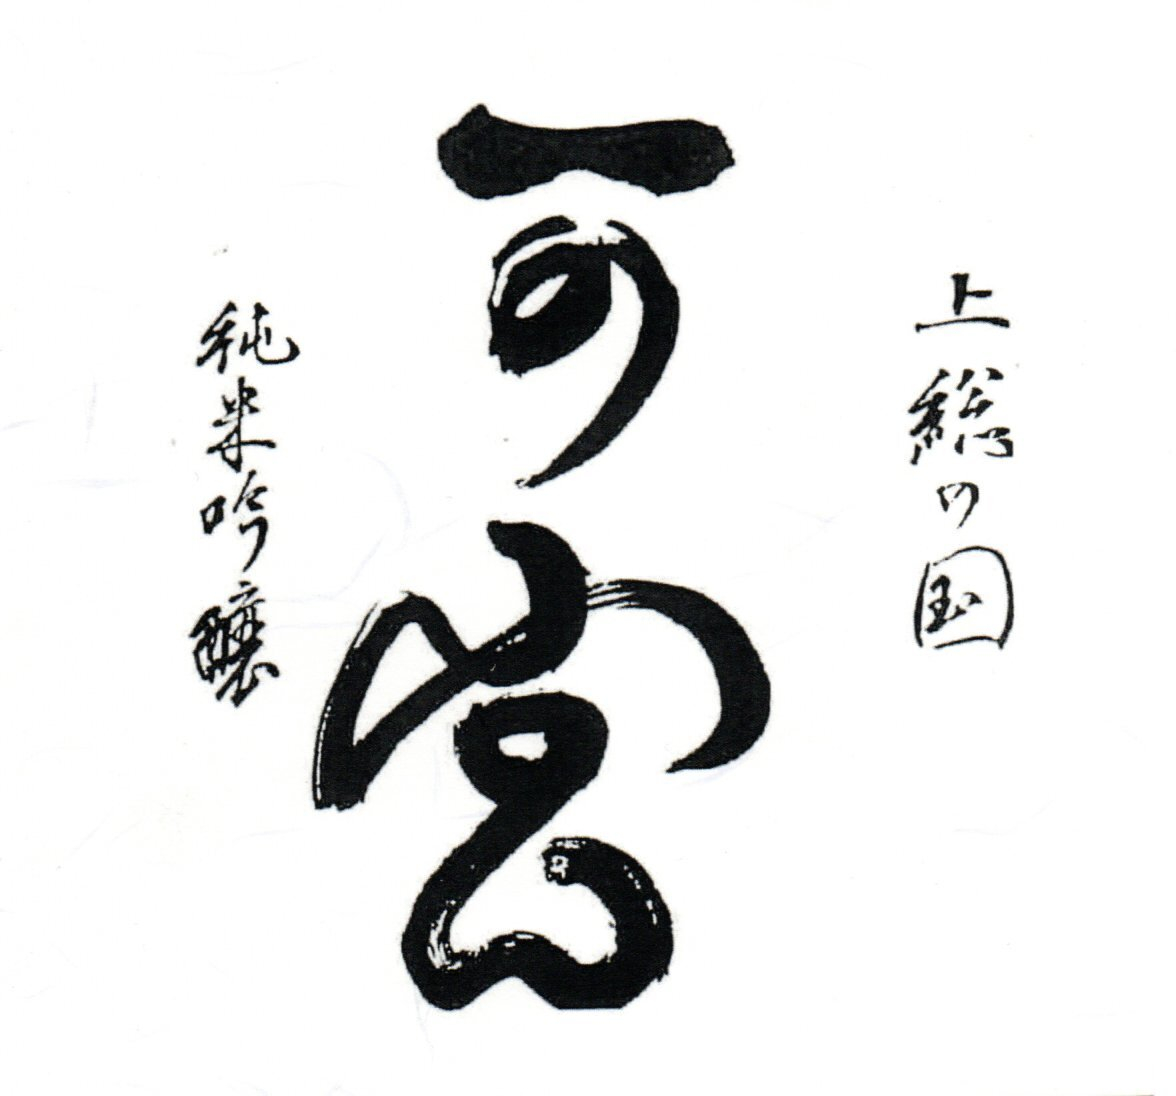 上総の国
一の宮
純米吟醸